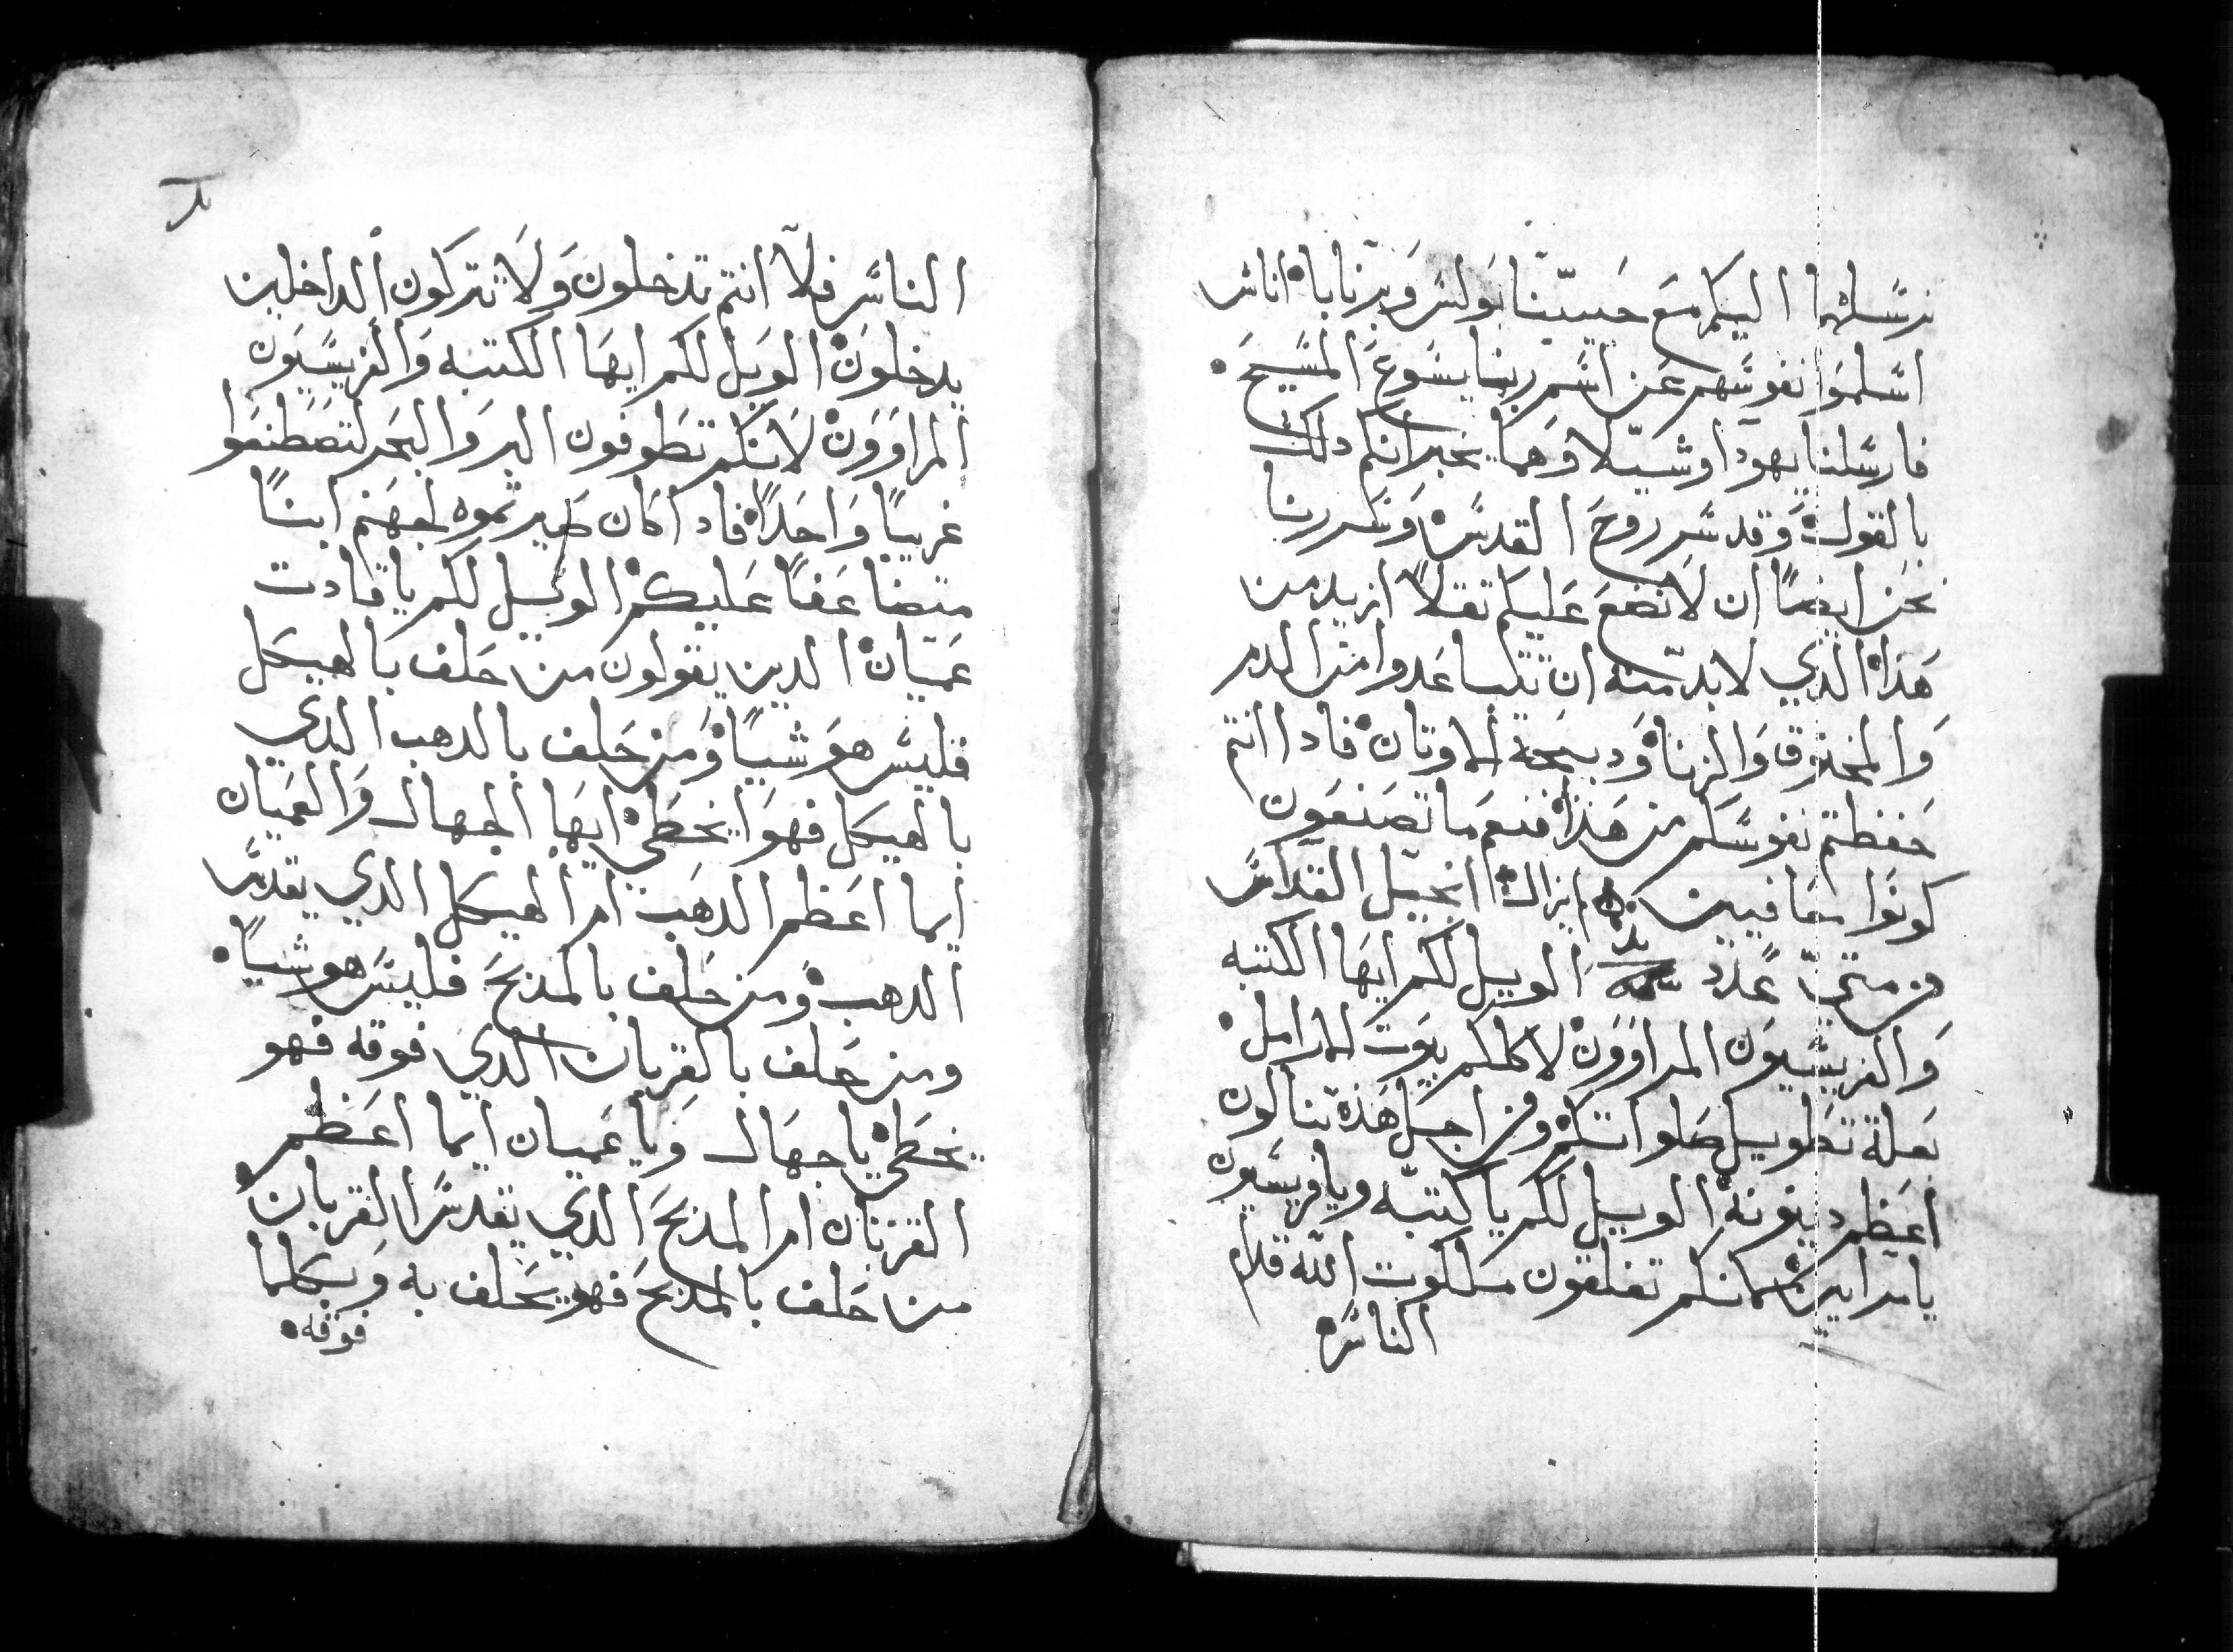 نرسلهما اليكم مع حبيبنا بولس وبرنابا اناس
اسلموا نفوسهم عن اسم ربنا يسوع المسيح
فارسلنا يهودا وشيلا وهما يخبرانكم دلك
بالقول وقد سر روح القدس وسررنا
نحن ايضا ان لا نضع عليكم تقلا ازيد من
هذا الذي لابد منه ان تتباعدوا من الدم
والمخنوق والزنا ودبيحة الاوتان فادا انتم
حفظتم نفوسكم من هذا فنعم ما تصنعون
كونوا معافيين انجيل القداس
من متي عدد الويل لكم ايها الكتبه
والفريسيون المراوون لاكلكم بيوت الارامل
بعلة تطويل صلواتكم ومن اجل هذه تنالون
اعظم دينونه الويل لكم يا كتبه ويا فريسيون
يا مرايين لانكم تغلقون ملكوت الله قدام
الناس
الناس فلا انتم تدخلون ولا تتركون الداخلين
يدخلون الويل لكم ايها الكتبه والفريسيون
المراوون لانكم تطوفون البر والبحر لتصطنعوا
غريبا واحدا فادا كان صيرتموه لجهنم ابنا
متضاعفا عليكم الويل لكم يا قادت
عميان الدين يقولون من حلف بالهيكل
فليس هو شيا ومن حلف بالدهب الدي
بالهيكل فهو يخطي ايها الجهال والعميان
ايما اعظم الدهب ام الهيكل الدي يقدس
الدهب ومن حلف بالمذبح فليس هو شيا
ومن حلف بالقربان الدي فوقه فهو
يخطي يا جهال ويا عميان ايما اعظم
القربان ام المذبح الدي يقدس القربان
من حلف بالمذبح فهو يحلف به وبكلما
فوقه